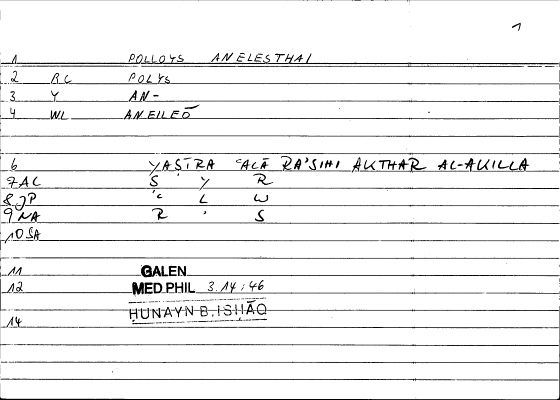 1
1 POLLOYS ANELESTHAI
2 RC POLYS
3 Y AN-
4 WL ANEILEŌ
6 YAṢĪRA ʿALĀ RA'SIHI AKTHAR AL-AKILLA
7 AL S Y R
8 JP ʿ L W
9 NA R ' S
10 SA
11 GALEN
12 MED PHIL 3.14:46
ḤUNAYN B. ISḤĀQ
14